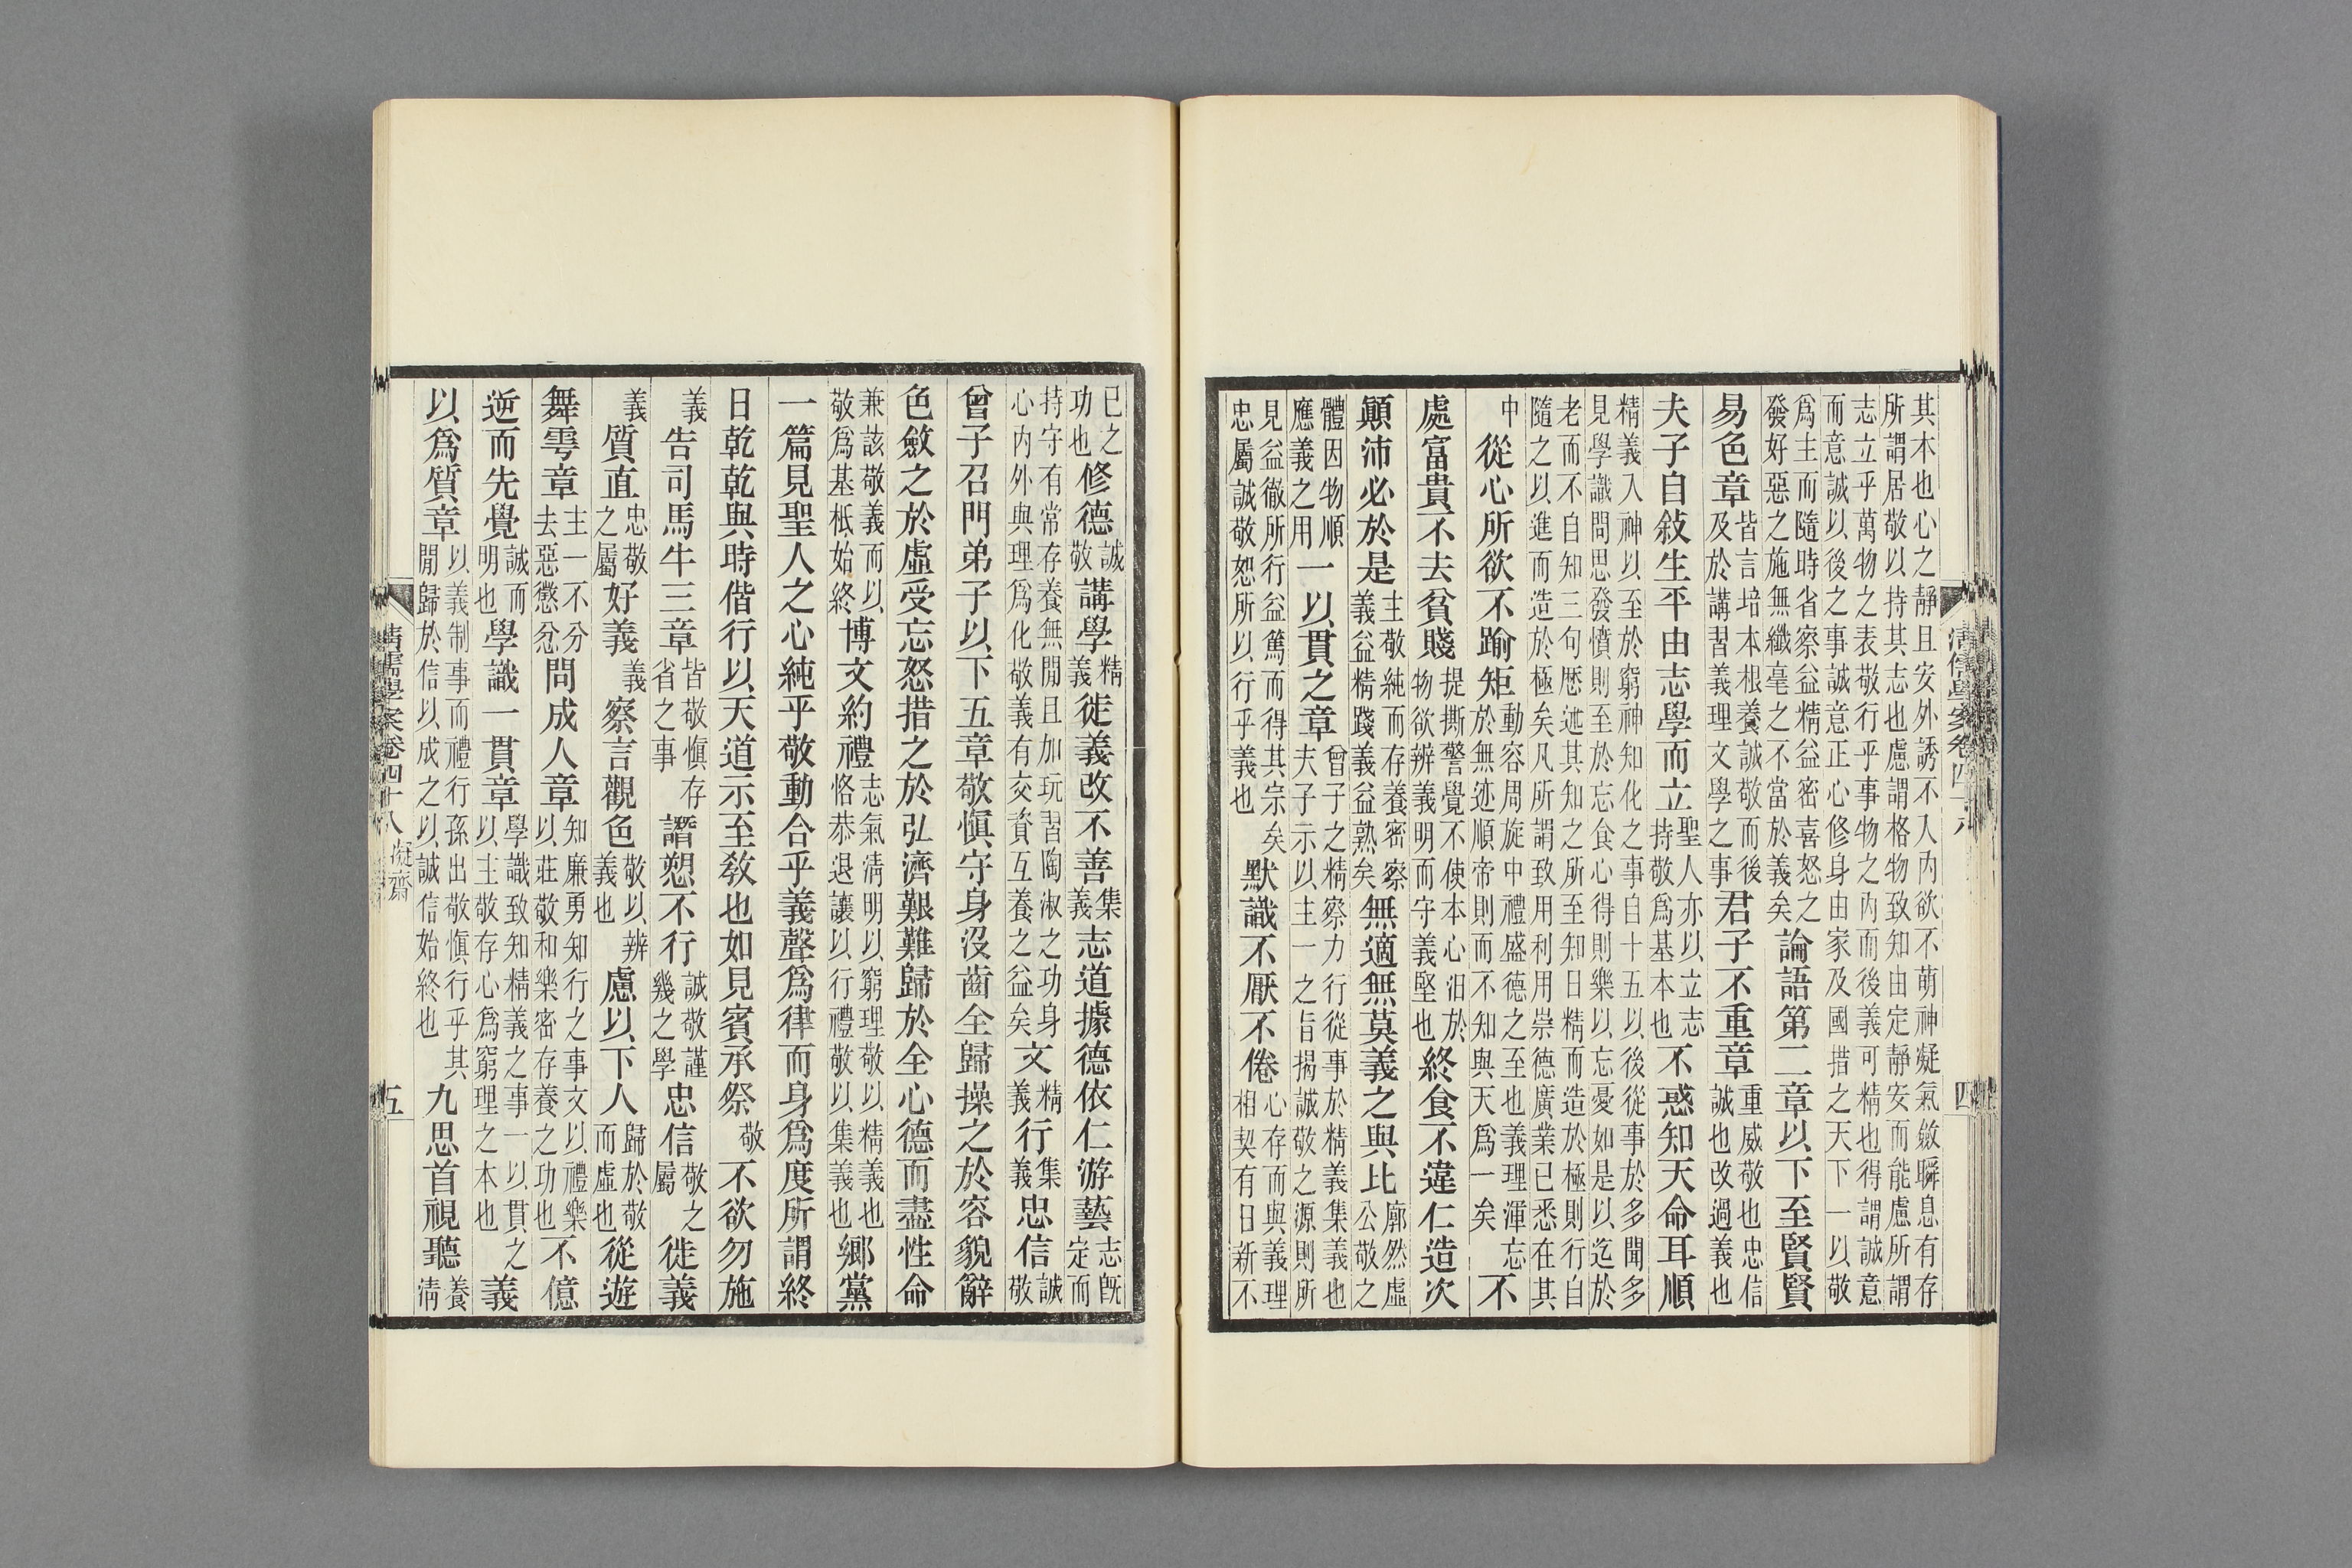 其木也心之靜且安外誘不入內欲不萌神凝氣斂瞬息有存
所謂居敬以持其志也慮謂格物致知由定靜安而能慮所謂
志立乎萬物之表敬行乎事物之內而後義可精也得謂誠意
而意誠以後之事誠意正心修身由家及國措之天下一以敬
爲主而隨時省察益精益密喜怒之
發好惡之施無纖毫之不當於義矣
論語第二章以下至賢賢
易色章
皆言培本根養誠敬而後
及於講習義理文學之事
君子不重章
重威敬也忠信
誠也改過義也
夫子自敍生平由志學而立
聖人亦以立志
持敬爲基本也
不惑知天命耳順
精義入神以至於窮神知化之事自十五以後從事於多聞多
見學識問思發憤則至於忘食心得則樂以忘憂如是以迄於
老而不自知三句歷述其知之所至知日精而造於極則行自
隨之以進而造於極矣凡所謂致用利用崇德廣業已悉在其
中
從心所欲不踰矩
動容周旋中禮盛德之至也義理渾忘
於無迹順帝則而不知與天爲一矣
不
處富貴不去貧賤
提撕警覺不使本心汨於
物欲辨義明而守義堅也
終食不違仁造次
顚沛必於是
主敬純而存養密察
義益精踐義益熟矣
無適無莫義之與比
廓然虛
公敬之
體因物順
應義之用
一以貫之章
曾子之精察力行從事於精義集義也
夫子示以主一之旨揭誠敬之源則所
見益徹所行益篤而得其宗矣
忠屬誠敬恕所以行乎義也
默識不厭不倦
心存而與義理
相契有日新不
已之
功也
修德
誠
敬
講學
精
義
徙義改不善
集
義
志道據德依仁游藝
志旣
定而
持守有常存養無閒且加玩習陶淑之功身
心內外與理爲化敬義有交資互養之益矣
文
精
義
行
集
義
忠信
誠
敬
曾子召門弟子以下五章敬愼守身沒齒全歸操之於容貌辭
色斂之於虛受忘怒措之於弘濟艱難歸於全心德而盡性命
兼該敬義而以
敬爲基柢始終
博文約禮
志氣清明以窮理敬以精義也
恪恭退讓以行禮敬以集義也
鄉黨
一篇見聖人之心純乎敬動合乎義聲爲律而身爲度所謂終
日乾乾與時偕行以天道示至敎也如見賓承祭
敬
不欲勿施
義
告司馬牛三章
皆敬愼存
省之事
譖愬不行
誠敬謹
幾之學
忠信
敬之
屬
徙義
義
質直
忠敬
之屬
好義
義
察言觀色
敬以辨
義也
慮以下人
歸於敬
而虛也
從遊
舞雩章
主一不分
去惡懲忿
問成人章
知廉勇知行之事文以禮樂
以莊敬和樂密存養之功也
不億
逆而先覺
誠而
明也
學識一貫章
學識致知精義之事一以貫之
以主敬存心爲窮理之本也
義
以爲質章
以義制事而禮行孫出敬愼行乎其
閒歸於信以成之以誠信始終也
九思首視聽
養
清
清儒學案卷四十八 凝齋
五
四